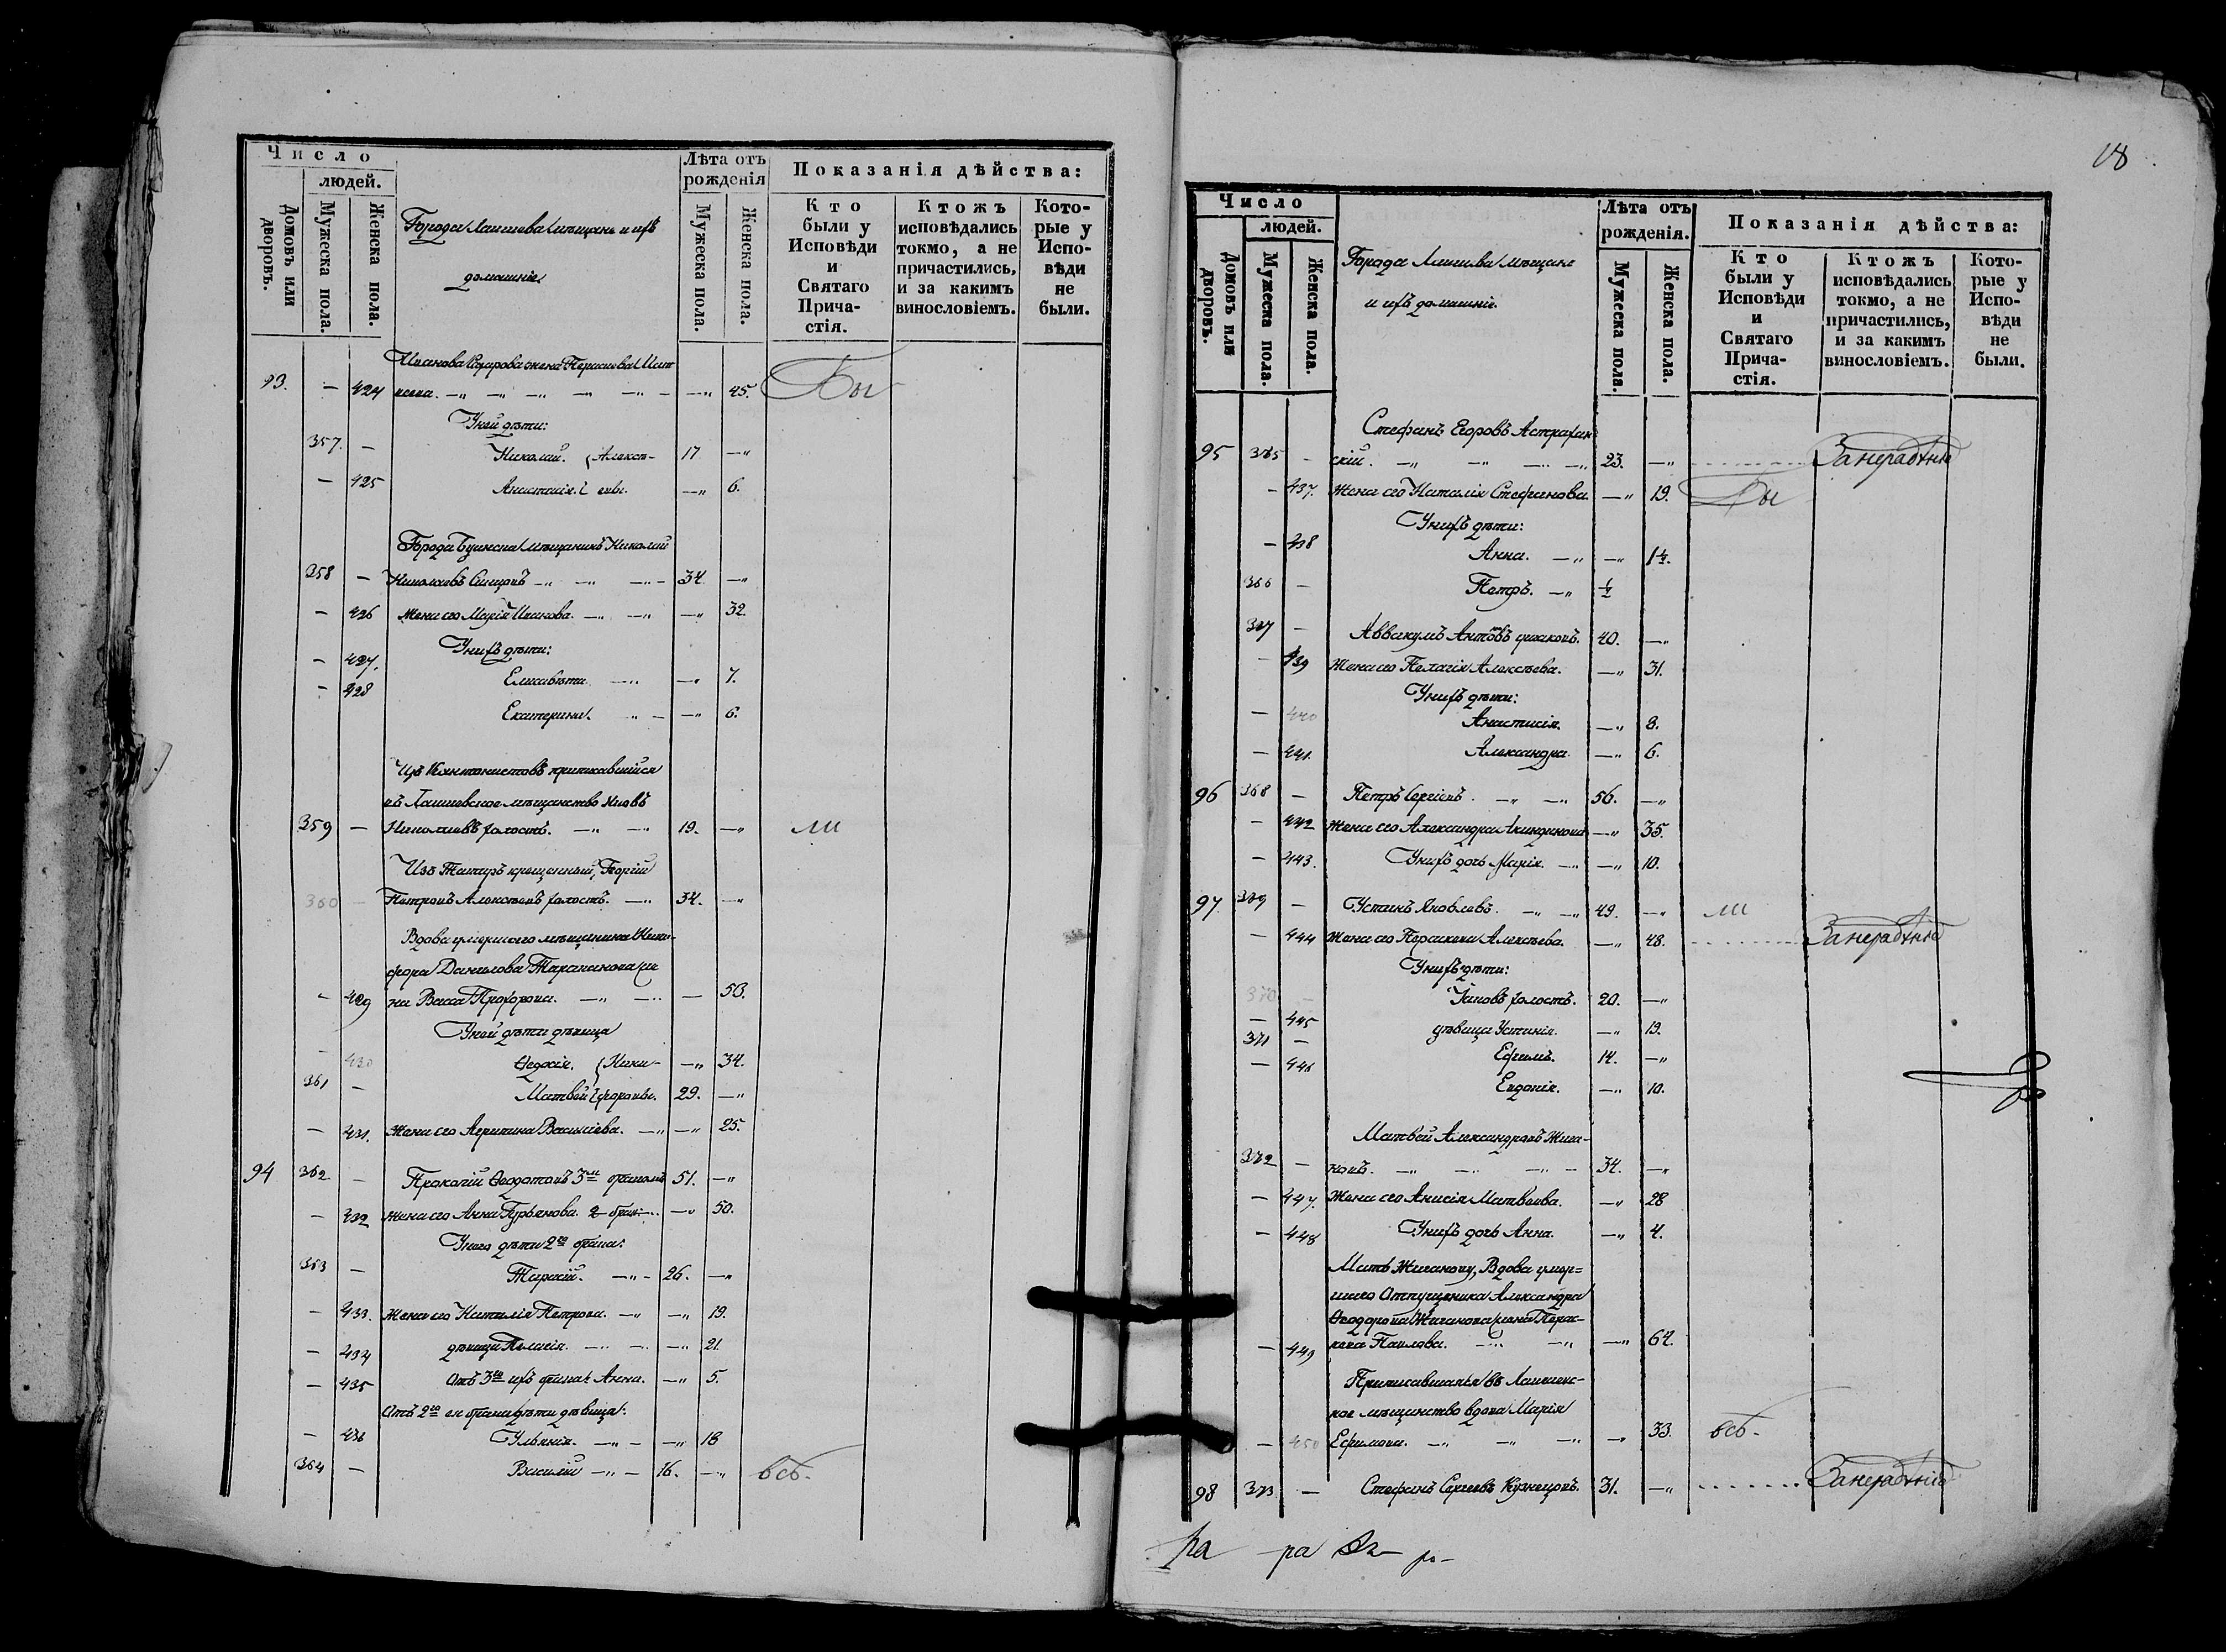 Число
людей.
Домовъ или дворовъ.
Мужеска пола.
Женска пола.
Города Лаишева мѣщане и ихъ
домашніе
Лѣта отъ
рожденія
Мужеска пола.
Женска пола.
Показанія дѣйства:
Кто
были у
Исповѣди
и
Святаго
Прича-
стія.
Ктожъ
исповѣдались
токмо, а не
причастились,
и за какимъ
винословіемъ.
Кото-
рые у
Испо-
вѣди
не
были.
Иванова жена
93. — 424 — 45. Бы
У ней дѣти:
357. — Николай. Алексѣ- 17 —
— 425 Анастасія. евы. — 6.
Города Буинска мѣщанинъ Николай
358 — Николаевъ — 34 —
— 426 Жена его Марія Иванова. — 32.
У нихъ дѣти:
— 427. Елисавета — 7.
— 428 Екатерина. — 6.
Изъ Кантонистовъ приписавшійся
въ Лаишевское мѣщанство Яковъ
359 — Николаевъ холостъ. — 19. — ли
Изъ Татаръ крещенный, Георгій
360 — Петровъ Алексѣевъ холостъ. — 34. —
Вдова умершаго мѣщанина Ники-
фора Данилова Тараканова же-
— 429 на Васса Прохорова. — 50.
У ней дѣти дѣвица
— 430 Ѳедосія. Ники- — 34.
361 — Матвей форовы. 29. —
— 431. Жена его Агрипина Васильева. — 25.
94 362 — Прокопій Ѳедотовъ 3мъ бракомъ 51. —
— 432 Жена его Анна Гурьянова. 2 брак. — 50.
У него дѣти 2го брака:
363 — Тарасій. — 26. —
— 433. Жена его Наталія Петрова. — 19.
— 434 дѣвица Пелагія. — 21.
— 435 Отъ 3го ихъ брака: Анна. — 5.
Отъ 2го ея брака дѣти дѣвица:
— 436 Ульянія. — 18
364 — Василій — 16. — всѣ.
18
Число
людей.
Домовъ или дворовъ.
Мужеска пола.
Женска пола.
Города Лаишева мѣщане
и ихъ домашніе.
Лѣта отъ
рожденія.
Мужеска пола.
Женска пола.
Показанія дѣйства:
Кто
были у
Исповѣди
и
Святаго
Прича-
стія.
Ктожъ
исповѣдались
токмо, а не
причастились,
и за какимъ
винословіемъ.
Кото-
рые у
Испо-
вѣди
не
были.
Стефанъ Егоровъ Астрахан-
95 365 — скій. — 23. — За нерадѣніе
— 437. Жена его Наталія Стефанова. — 19. Бы
У нихъ дѣти:
— 438 Анна. — 1½.
366 — Петръ. — ½
367 — Аввакумъ Антоновъ 40. —
— 439 Жена его Пелагія Алексѣева. — 31.
У нихъ дѣти:
— 440 Анастасія. — 8.
— 441. Александра. — 6.
96 368 — Петръ Сергіевъ. — 56. —
— 442 Жена его Александра Акиндинова — 35.
— 443. У нихъ дочь Марія. — 10.
97. 369 — Устинъ Яковлевъ. — 49. — ли
— 444 Жена его Параскева Алексѣева. — 48. За нерадѣніе
У нихъ дѣти:
370 — Іаковъ холостъ. 20. —
— 445 дѣвица Устинія. — 19.
371 — Ефимъ. 14. —
— 446 Евдокія. — 10.
Матвей Александровъ Жига-
372 — новъ. — 34. —
— 447. Жена его Анисія Матвеева. — 28
— 448 У нихъ дочь Анна. — 4.
Мать Жиганову, Вдова умер=
шаго Отпущеника Александра
Ѳеодорова Жиганова жена Парас-
— 449 кева Павлова. — 64.
Приписавшаяся въ Лаишевс-
кое мѣщанство вдова Марія
— 450 Ефимова. — 33. всѣ.
98 373 — Стефанъ Сергеевъ Кузнецовъ. 31. — За нерадѣніе